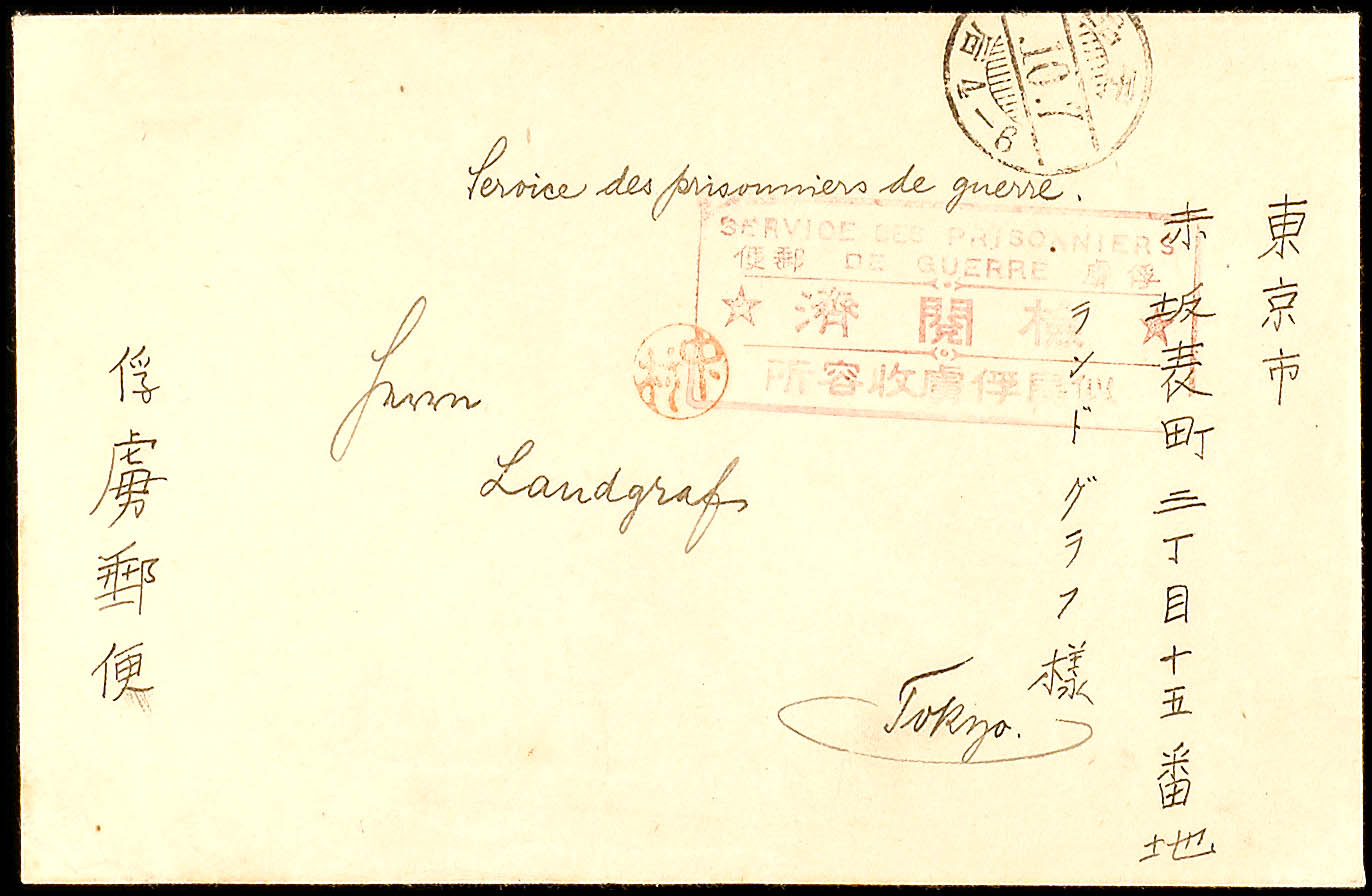 10.7
前 4-6
Service des prisonniers de guerre.
SERVICE DES PRISONNIERS
俘虜 DE GUERRE 郵便
檢閲濟
似島俘虜收容所
東京市
赤坂表町三丁目十五番地
ランドグラフ様
Herrn
Landgraf
Tokyo.
俘虜郵便